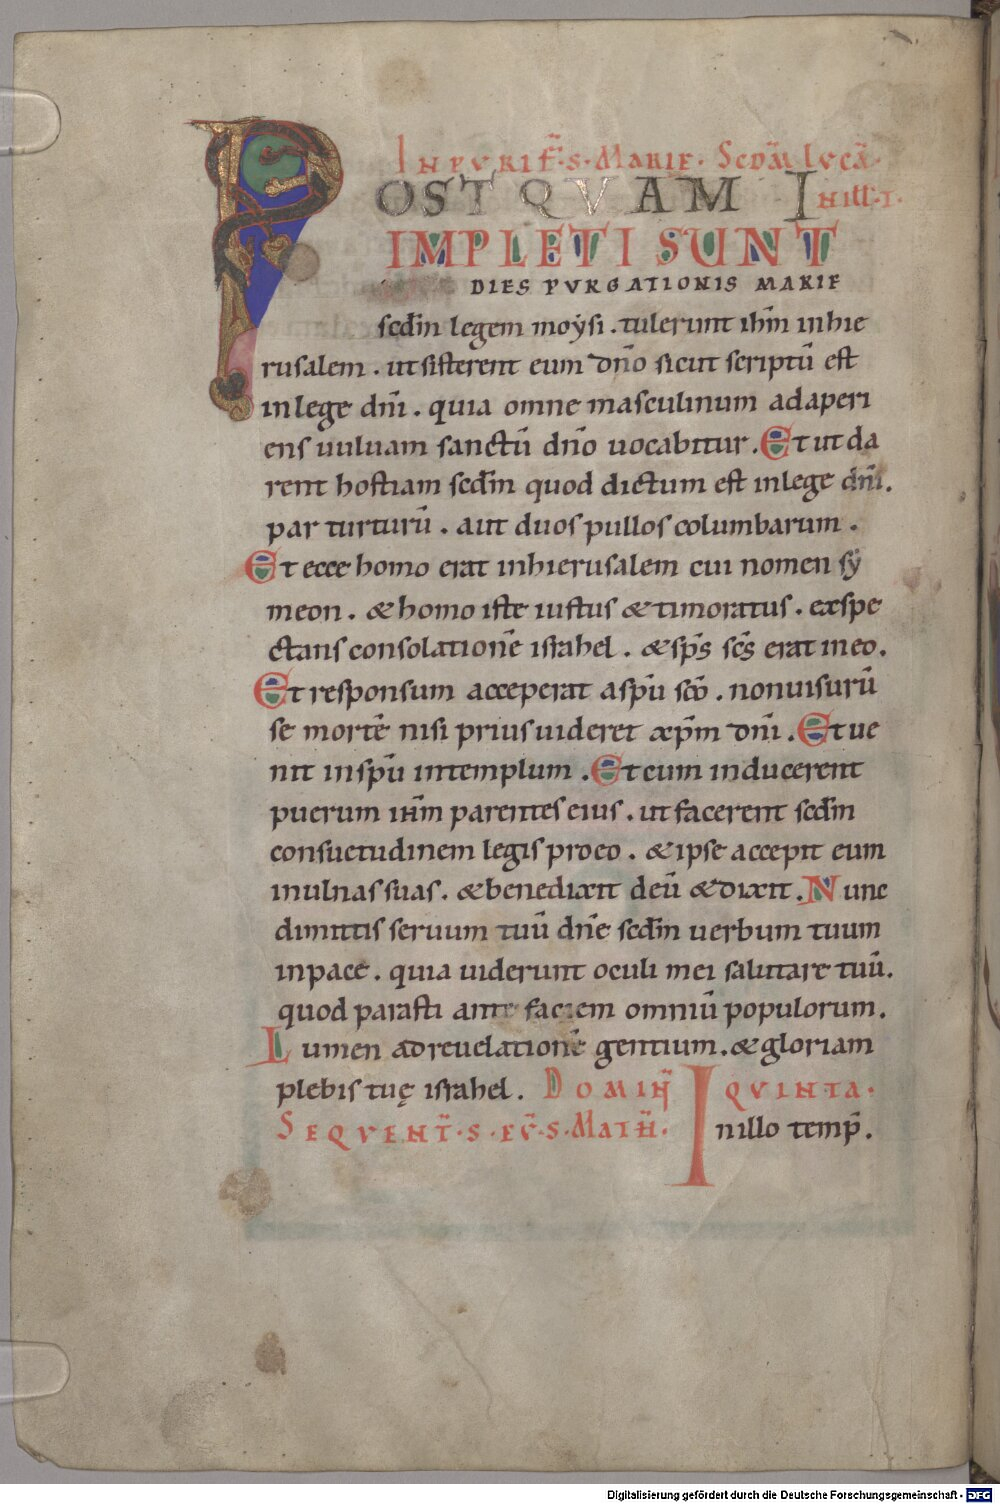 IN PURIF̄·S·MARIE· SC̄DM̄ LVCĀ·
POSTQVAM I
N ILL·T·
IMPLETI SUNT
DIES PVRGATIONIS MARIE
sed̄m legem moẏsi . tulerunt ih̄m inhie
rusalem . ut sisterent eum dn̄o sicut scriptū est
in lege dn̄i . quia omne masculinum adaperi
ens uuluam sanctū dn̄o uocabitur . Et ut da
rent hostiam sed̄m quod dictum est in lege dn̄i.
par turturū . aut duos pullos columbarum .
Et ecce homo erat inhierusalem cui nomen sẏ
meon . & homo iste iustus & timoratus . exspe
ctans consolationē israhel . & sp̄s sc̄s erat in eo.
Et responsum acceperat a sp̄u sc̄o . non uisurū
se mortē nisi prius uideret xp̄m dn̄i . Et ue
nit in sp̄u in templum . Et cum inducerent
puerum ih̄m parentes eius . ut facerent sed̄m
consuetudinem legis pro eo . & ipse accepit eum
in ulnas suas . & benedixit deū & dixit . Nunc
dimittis seruum tuū dn̄e sed̄m uerbum tuum
in pace . quia uiderunt oculi mei salutare tuū.
quod parasti ante faciem omniū populorum.
Lumen ad reuelationē gentium . & gloriam
plebis tuę israhel . DOMIN̄ QVINTA·
SEQVENT̄·S·EV̄·S·MATH̄· Inillo temp̄.
Digitalisierung gefördert durch die Deutsche Forschungsgemeinschaft - DFG